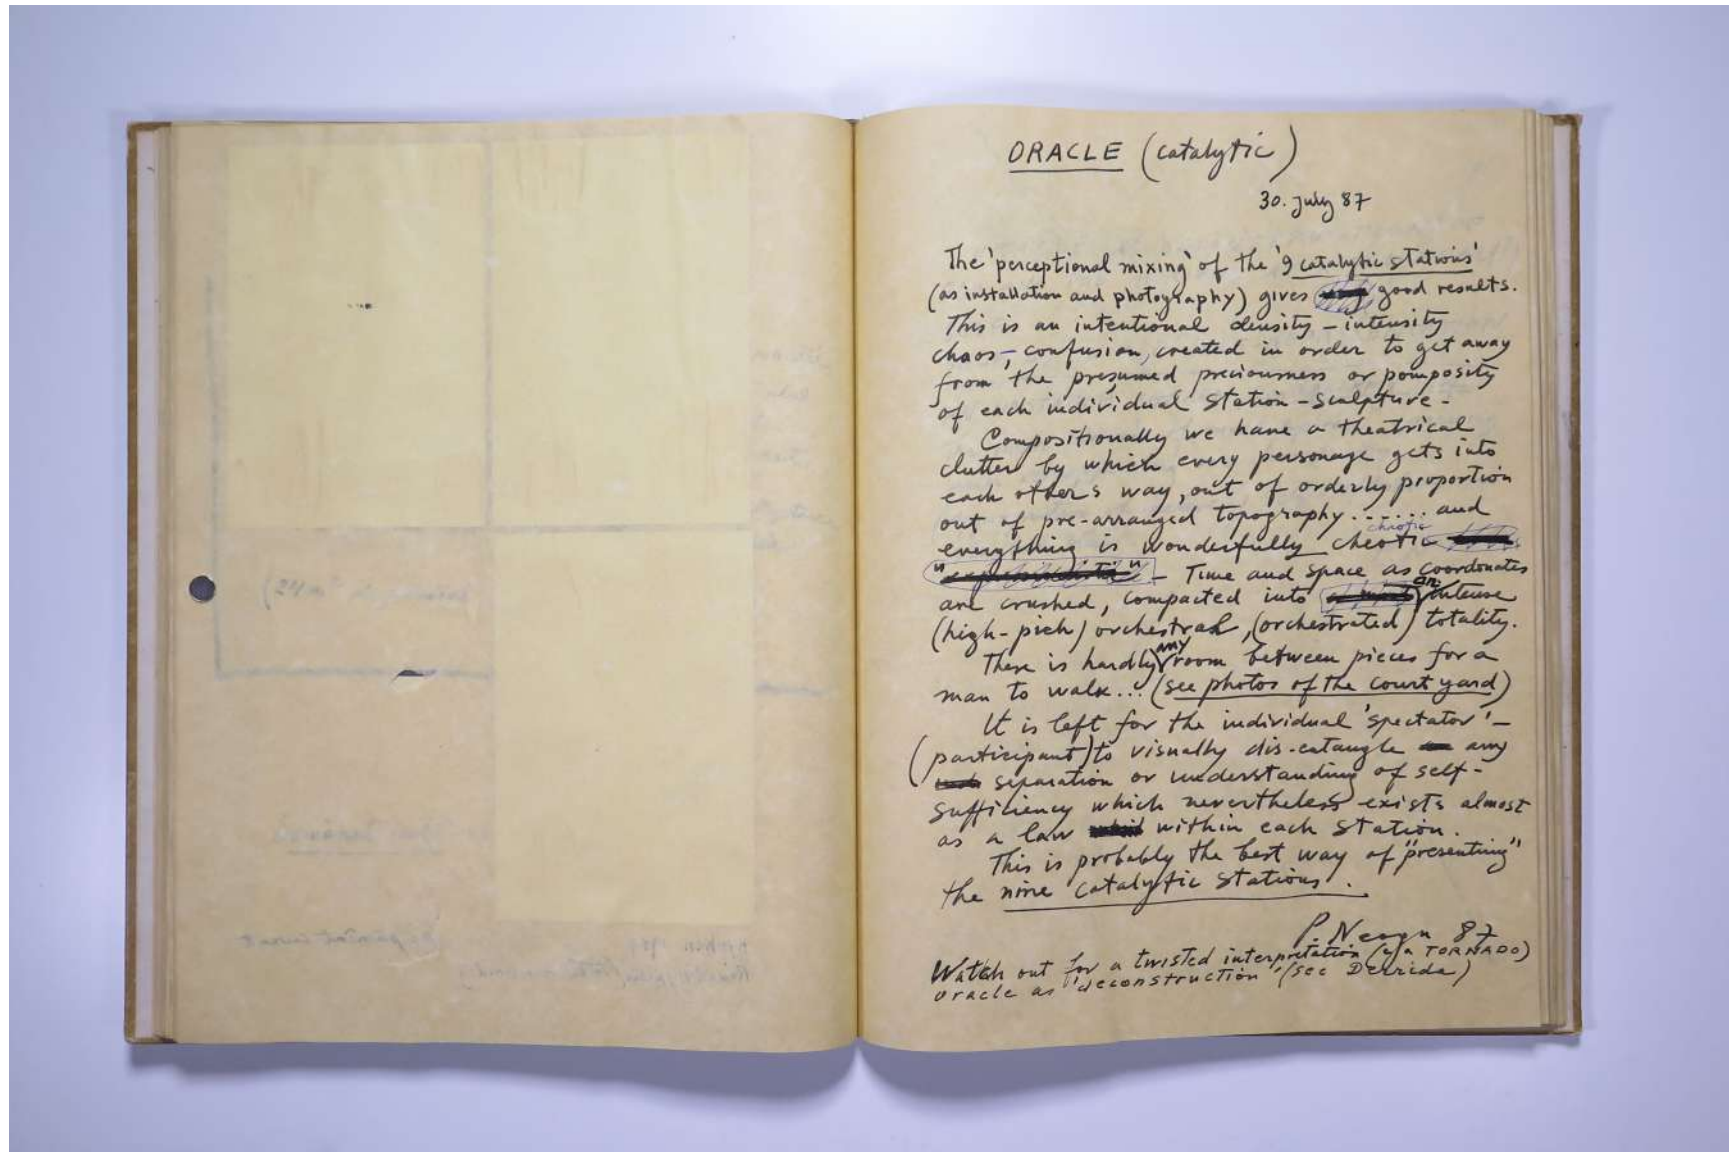 ORACLE (catalytic)
30. July 87
The 'perceptional mixing' of the '9 catalytic stations'
(as installation and photography) gives good results.
This is an intentional density – intensity
chaos – confusion, created in order to get away
from the presumed preciousness or pomposity
of each individual station – sculpture –
Compositionally we have a theatrical
clutter by which every personage gets into
each others way, out of orderly proportion
out of pre-arranged topography ....... and
chaotic
everything is wonderfully cheotic
– Time and space as coordonates
are crushed, compacted into an intense
(high-pich) orchestral, (orchestrated) totality.
There is hardly any room between pieces for a
man to walk... (see photos of the court yard)
It is left for the individual 'spectator' –
(participant) to visually dis-entangle any
separation or understanding of self-
sufficiency which nevertheless exists almost
as a law within each station.
This is probably the best way of "presenting"
the nine catalytic stations.
P. Neagu 87
Watch out for a twisted interpretation (v/a TORNADO)
Oracle as 'deconstruction' (see Derrida)